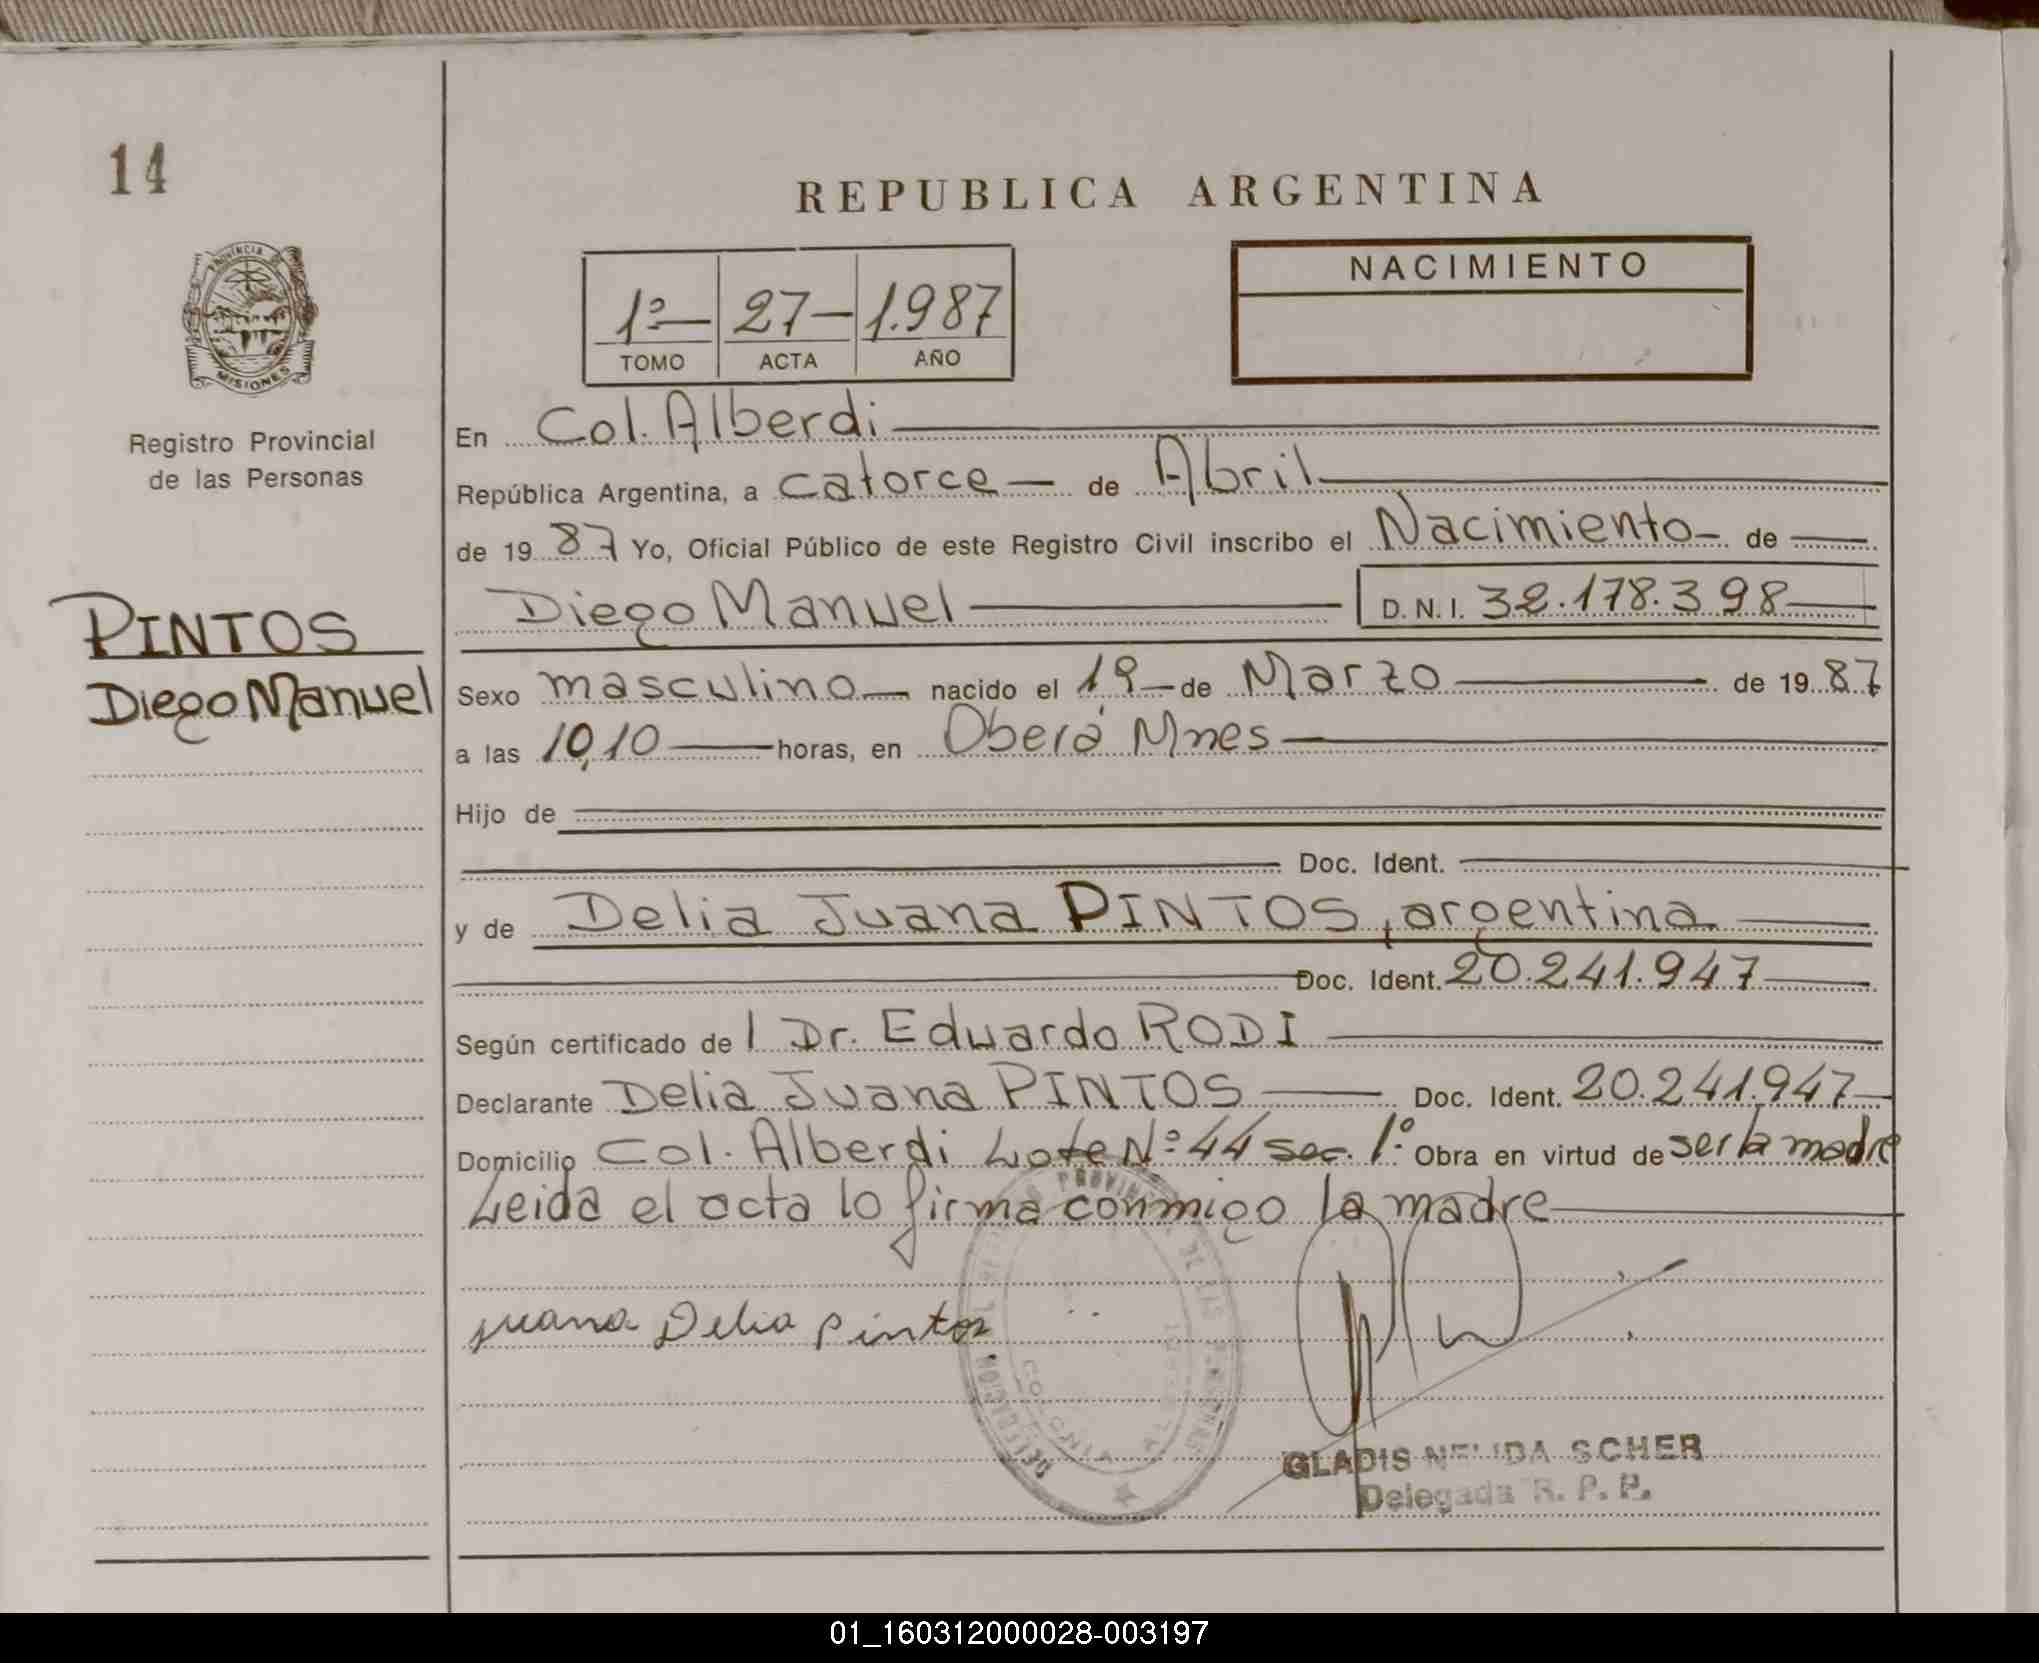 14
REPUBLICA ARGENTINA
PROVINCIA DE
MISIONES
Registro Provincial
de las Personas
1º
27
1.987
TOMO
ACTA
AÑO
NACIMIENTO
PINTOS
Diego Manuel
En Col. Alberdi
República Argentina, a catorce de Abril
de 1987 Yo, Oficial Público de este Registro Civil inscribo el Nacimiento de
Diego Manuel D.N.I. 32.178.398
Sexo masculino nacido el 19 de Marzo de 1987
a las 10,10 horas, en Oberá Mnes
Hijo de
Doc. Ident.
y de Delia Juana PINTOS, argentina
Doc. Ident. 20.241.947
Según certificado de l Dr. Eduardo RODI
Declarante Delia Juana PINTOS Doc. Ident. 20.241.947
Domicilio Col. Alberdi Lote Nº 44 sec. 1º Obra en virtud de ser la madre
Leida el acta lo firma conmigo la madre
juana Delia pintos
GLADIS NELIDA SCHER
Delegada R. P. P.
01_160312000028-003197